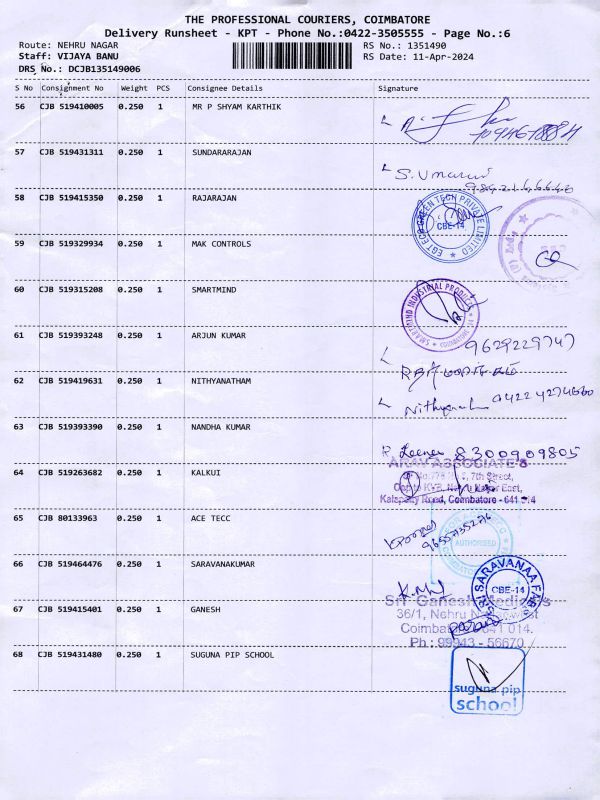 THE PROFESSIONAL COURIERS, COIMBATORE
Delivery Runsheet - KPT - Phone No.:0422-3505555 - Page No.:6
Route: NEHRU NAGAR
RS No.: 1351490
Staff: VIJAYA BANU
RS Date: 11-Apr-2024
DRS No.: DCJB135149006
S No Consignment No Weight PCS Consignee Details Signature
56 CJB 519410005 0.250 1 MR P SHYAM KARTHIK
57 CJB 519431311 0.250 1 SUNDARARAJAN
58 CJB 519415350 0.250 1 RAJARAJAN
EGT ECO GREEN TECH PRIVATE LIMITED
CBE-14
59 CJB 519329934 0.250 1 MAK CONTROLS
60 CJB 519315208 0.250 1 SMARTMIND
SMARTMIND INDUSTRIAL PRODUCTS
61 CJB 519393248 0.250 1 ARJUN KUMAR
9629229747
62 CJB 519419631 0.250 1 NITHYANATHAM
63 CJB 519393390 0.250 1 NANDHA KUMAR
8300909805
ARAV ASSOCIATE'S
64 CJB 519263682 0.250 1 KALKUI
7th Street,
Nehru Nagar East,
Kalapatty Road, Coimbatore - 641 014
65 CJB 80133963 0.250 1 ACE TECC
AUTHORISED
66 CJB 519464476 0.250 1 SARAVANAKUMAR
SARAVANAA FABS
CBE-14
67 CJB 519415401 0.250 1 GANESH
Sri Ganesh Medicals
36/1, Nehru Nagar West
Coimbatore - 641 014.
Ph : 99943 - 56670
68 CJB 519431480 0.250 1 SUGUNA PIP SCHOOL
suguna pip
school